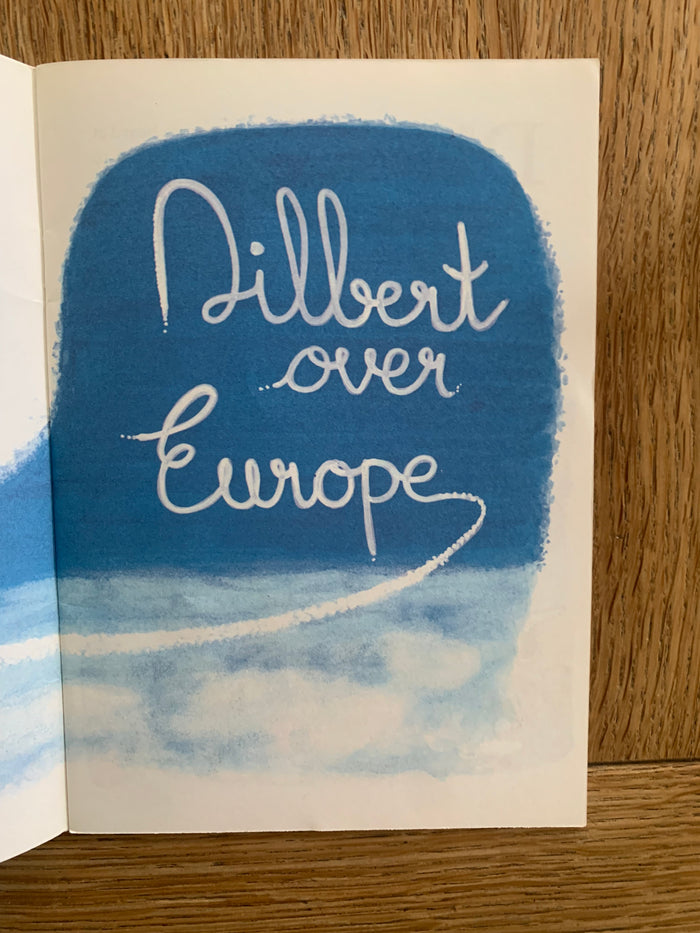 Dilbert
over
Europe